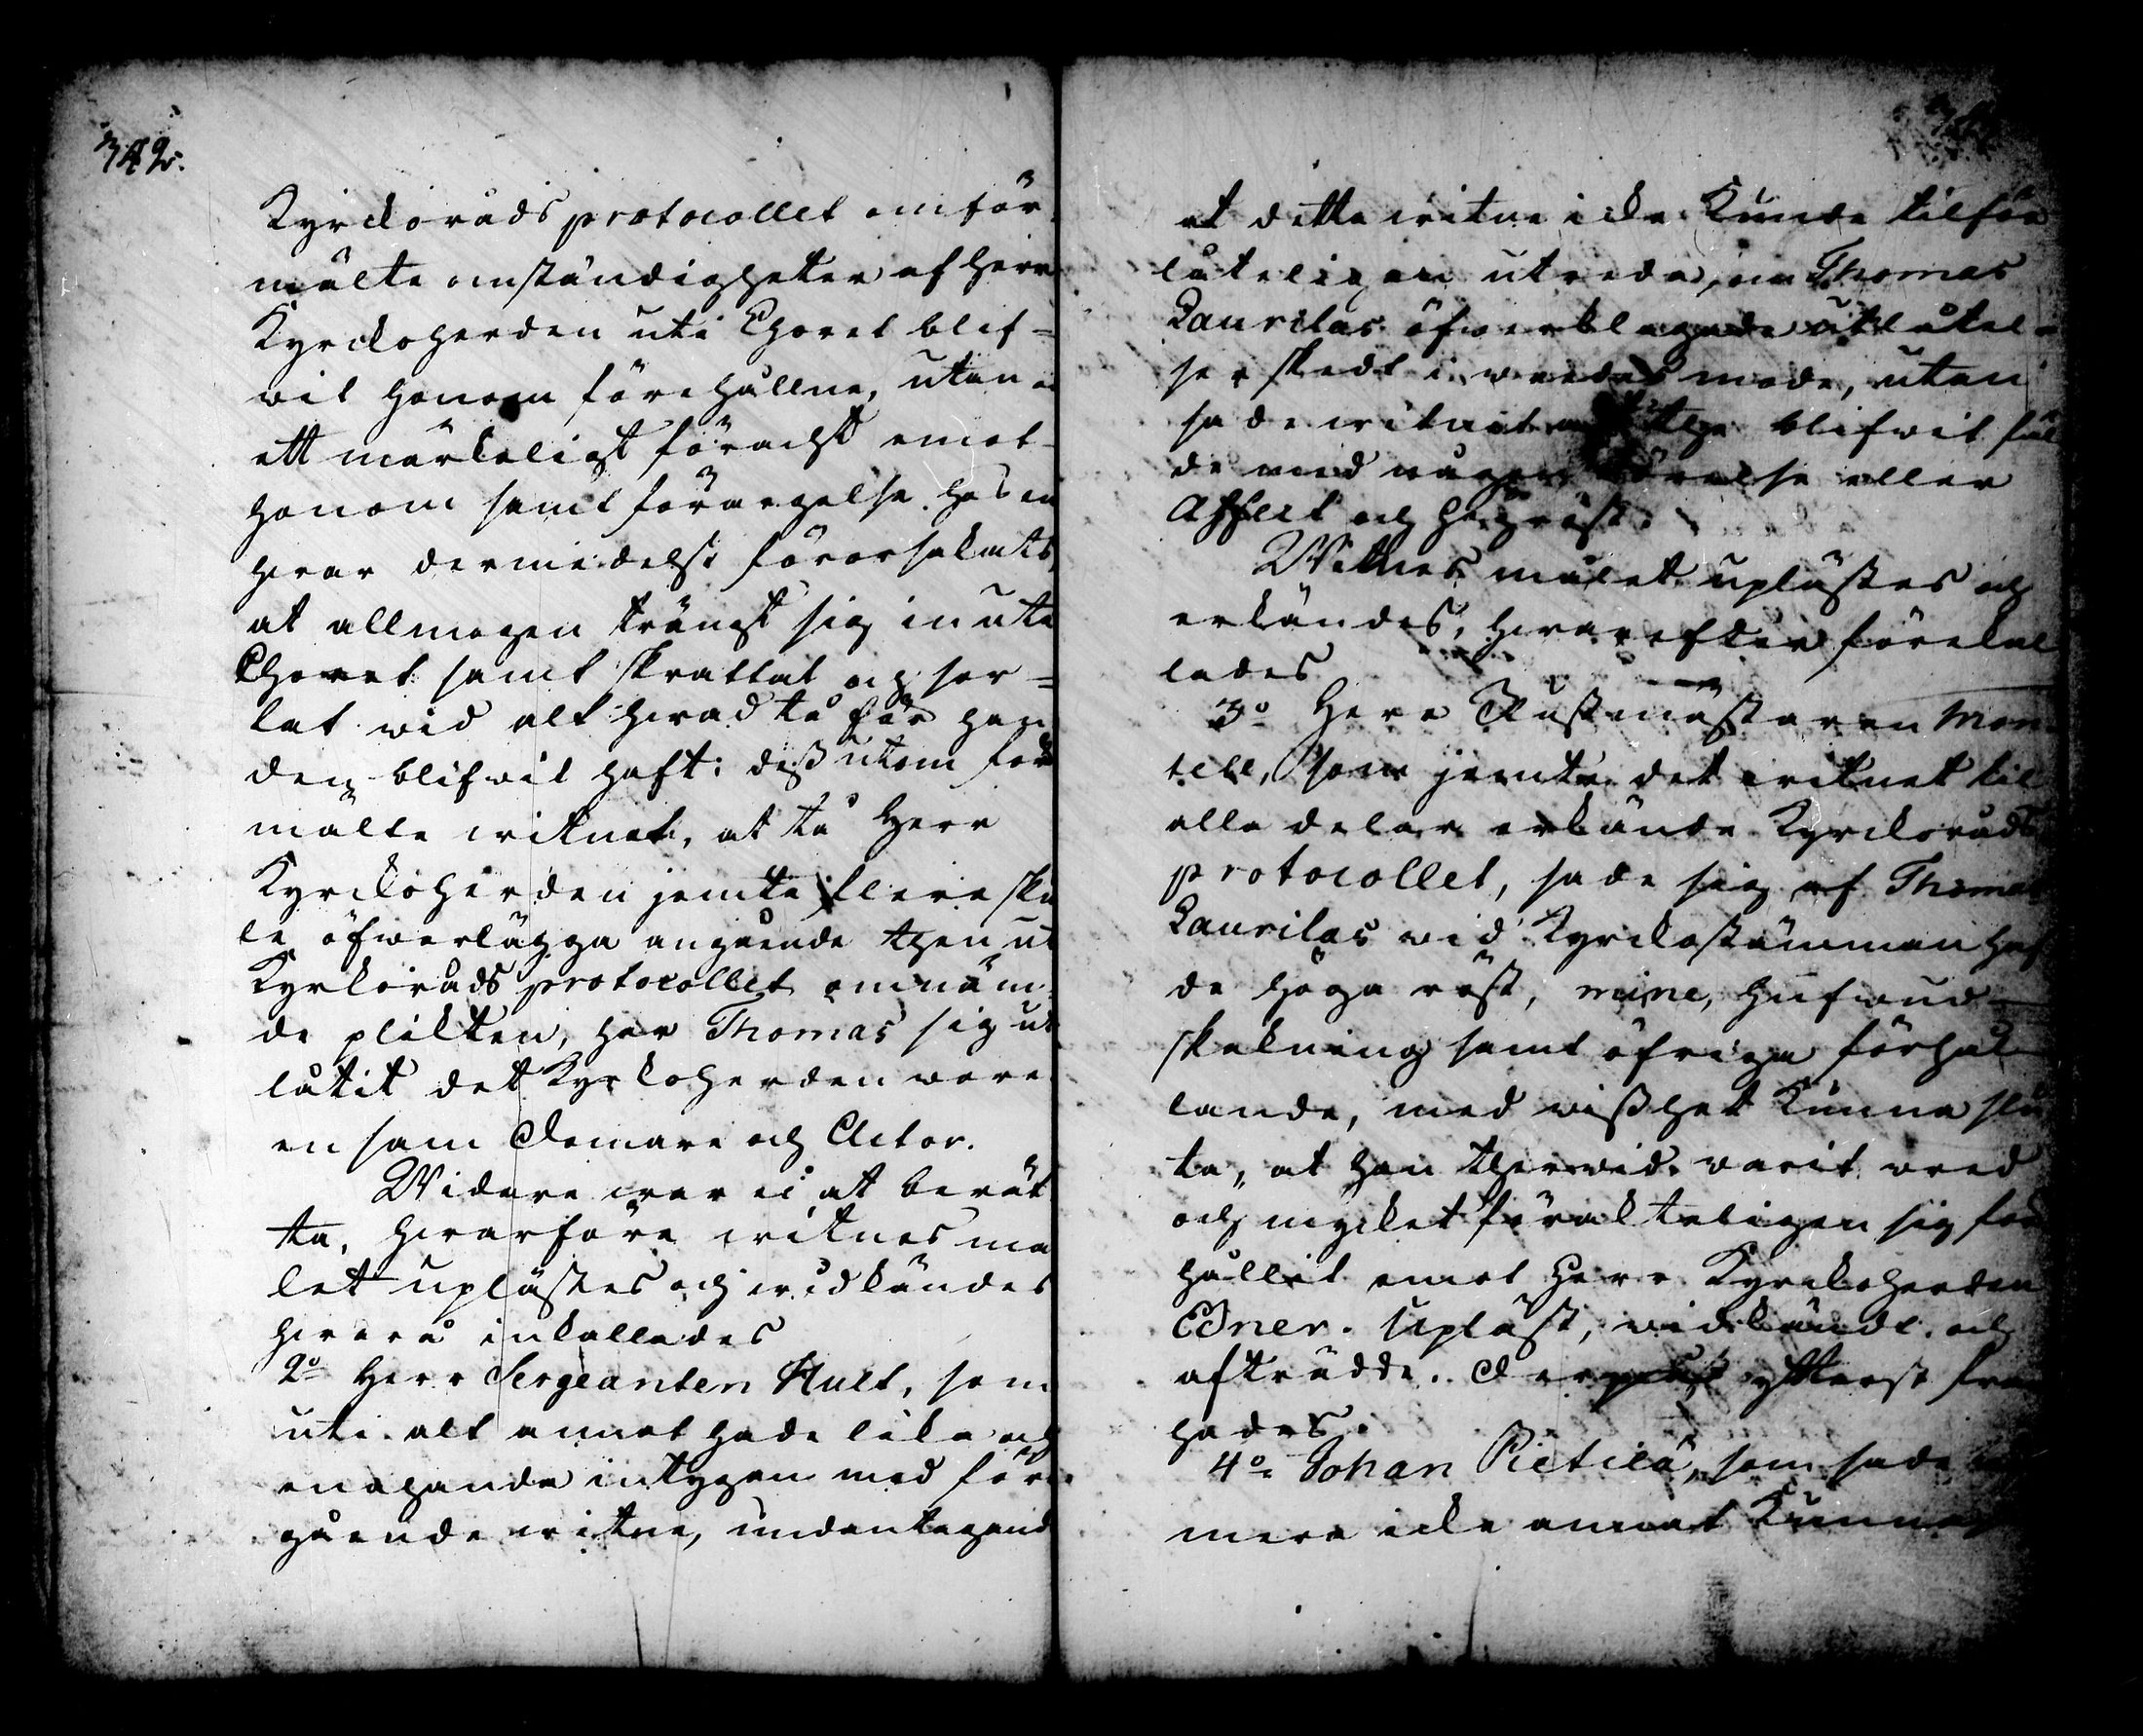 342.
Kyrckoråds protocollet omför-
mälte omständigheter af Herr
Kyrckoherden uti Choret blif-
wit honom förehållne, utan
ett märkeligt föracht emot
honom samt förargelse hos en
hwar dermedelst förorsakats,
at allmogen trängt sig in uti
Choret samt skrattat och sor-
lat wid alt hwad tå för han-
den blifwit haft: dess utom för
mälte witnet, at tå Herr
Kyrckoherden jemte flere sku
le öfwerlägga angående then uti
Kyrkoråds protocollet omnäm-
de plikten, har Thomas sig ut
låtit det Kyrckoherden wore
en sam Domare och Actor.
Widare war ei at berät
ta, hwarföre witnes må
let uplästes och widkändes
hwarå inkallades
2o Herr Sergeanten Hult, som
uti alt annat hade lika och
enahanda intygan med före
gående witne, undantagand
at detta witne icke kunde tilför
låteligen utreda, om Thomas
Laurilas öfwerklagade utlåtel-
ser skedt i wredes mode, utan
sade witnet blifwit fäl
de med någon rörelse eller
Affect och hög röst.
Wittnes målet uplästes och
erkändes, hwarefter förekal
lades
3o Herr Rustmästaren Mon
tell, som jemte det witnet til
alla delar erkände Kyrckoråds
protocollet, sade sig af Thomas
Laurilas wid Kyrckostämman haf
de höga röst, mine, hufwud-
skakning samt öfriga förhål-
lande, med wisshet kunna slu
ta, at han therwid warit wred
och mycket förakteligen sig för
hållit emot Herr Kyrckoherden
Edner. Upläst, widkändt och
afträdde. Derpå ytterst fram
hades.
4o Johan Pietilä, som sade
mera icke annat kunna